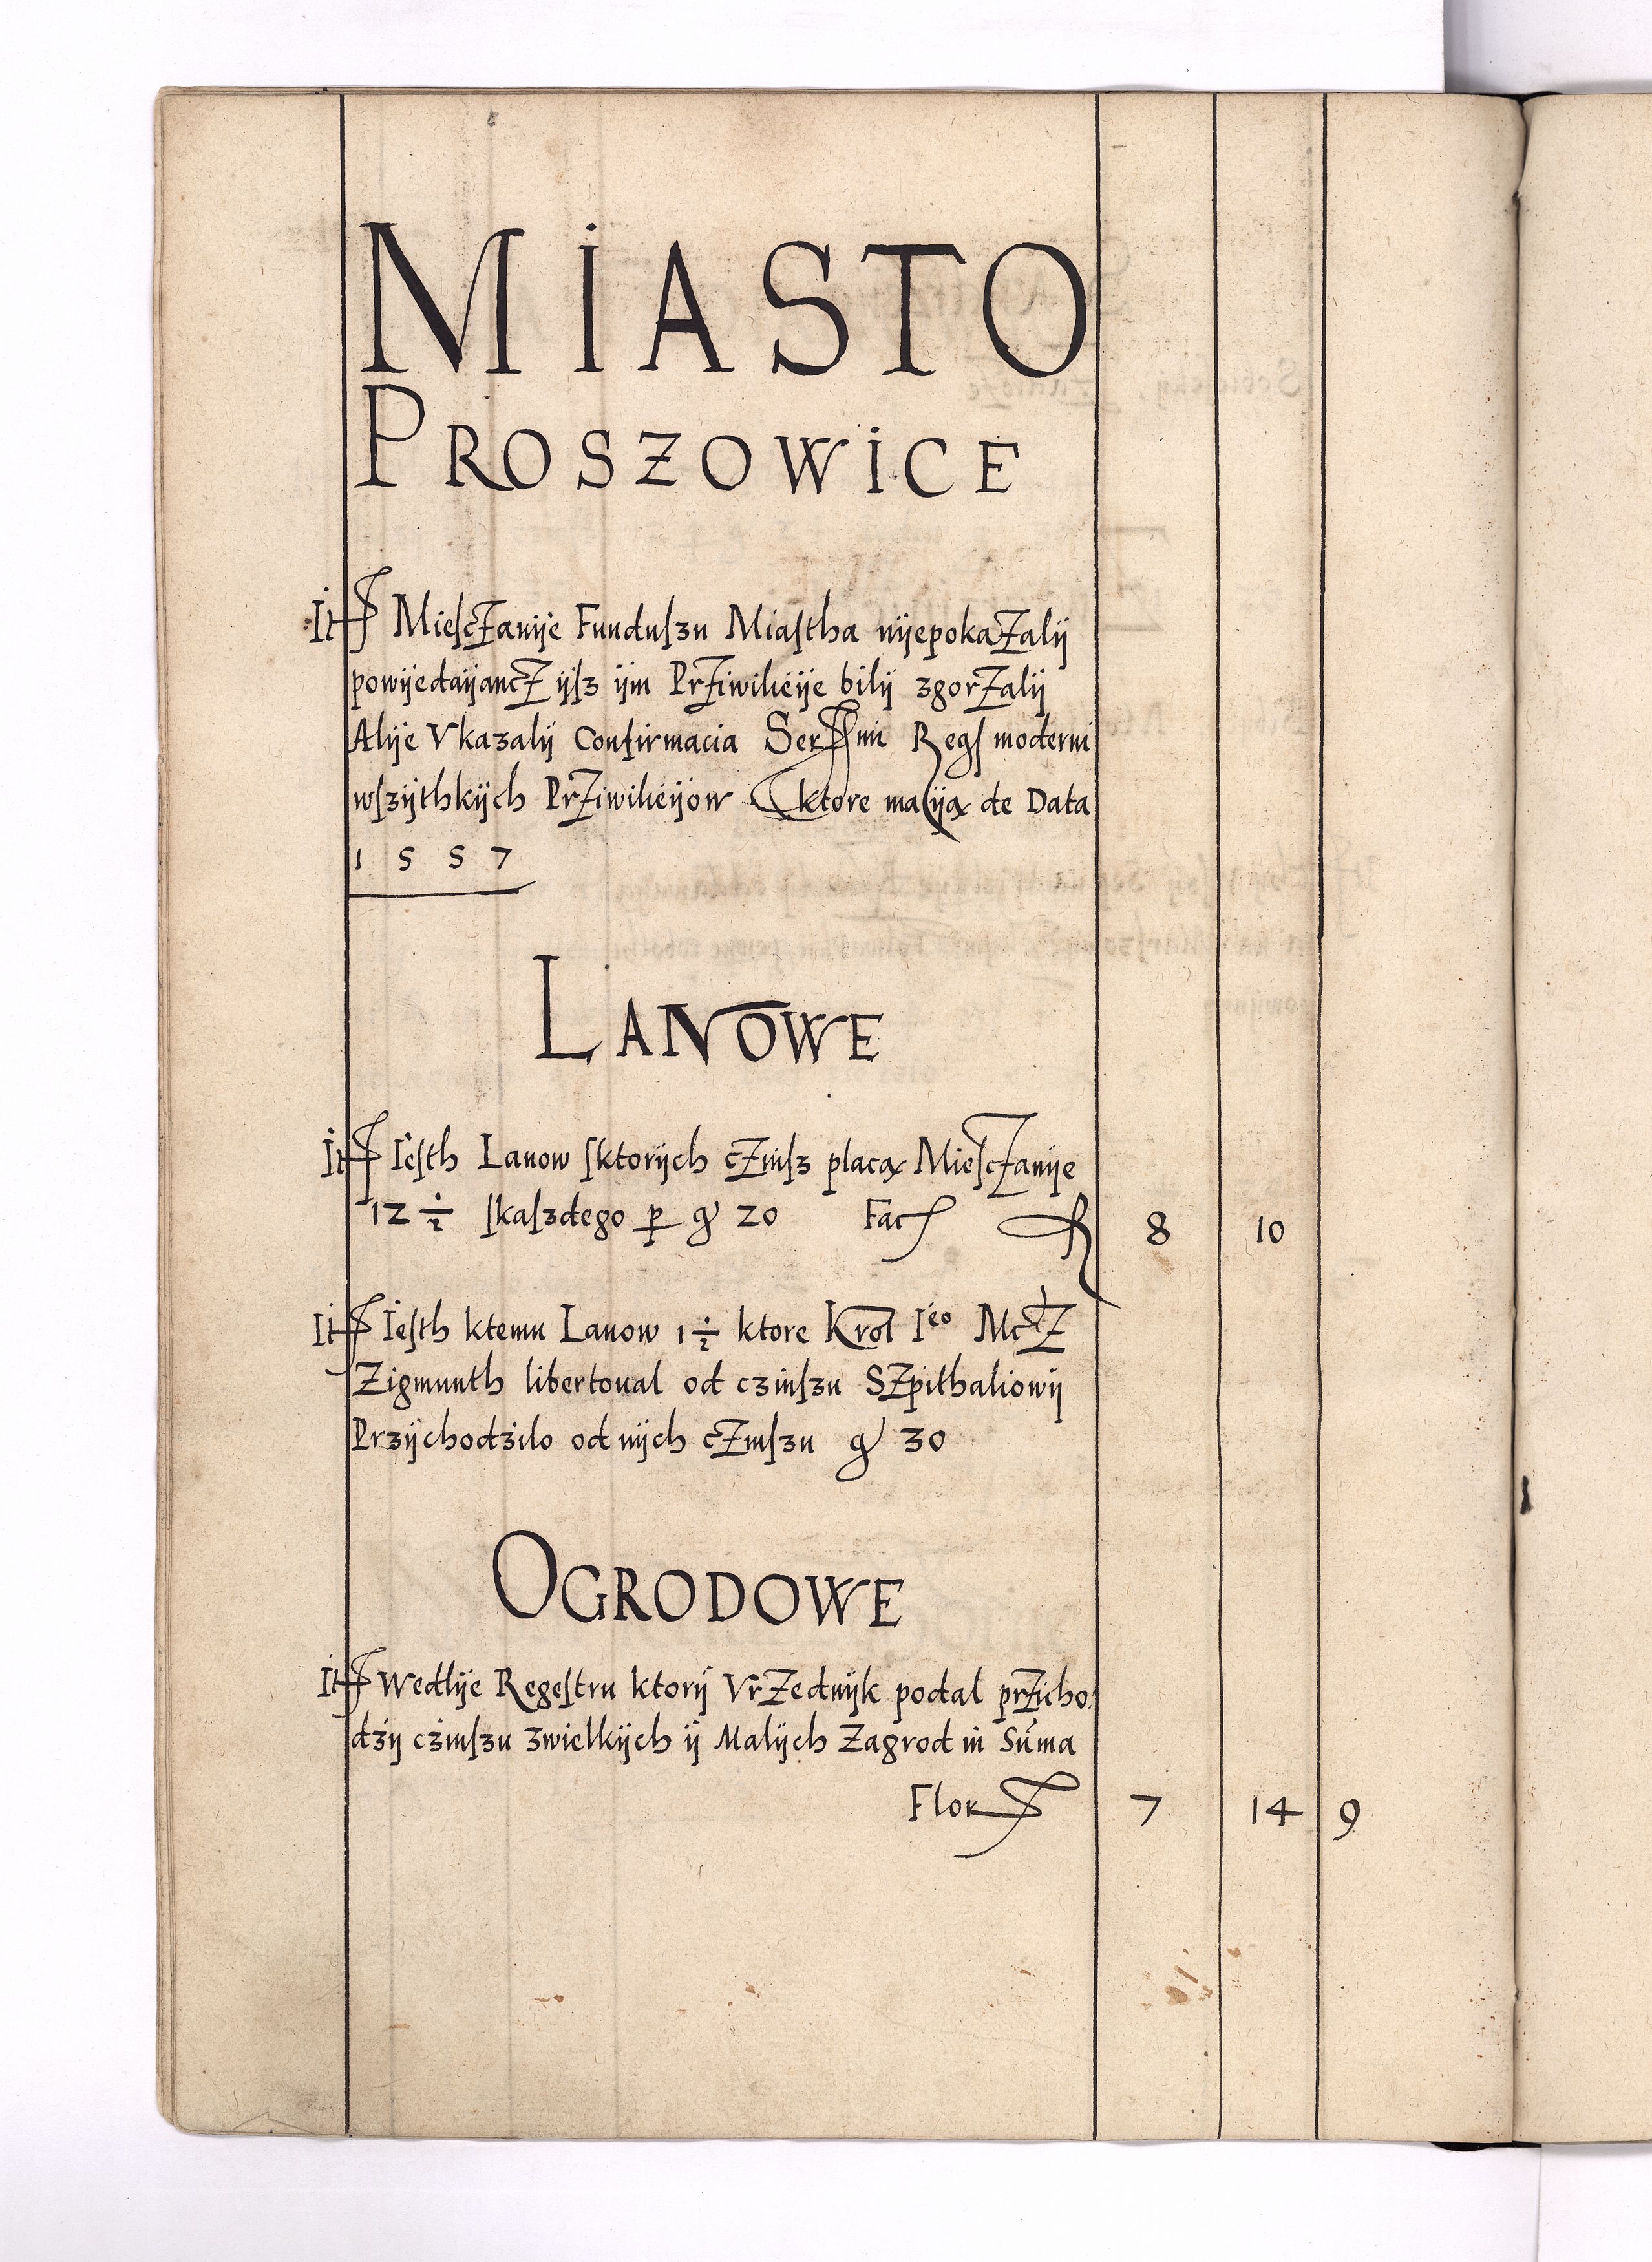 MIASTO
PROSZOWICE
It Miesczanÿe Funduszu Miastha nÿepokazalÿ
powÿedaÿancz ÿsz ÿm Prziwilieÿe bilÿ zgorzalÿ
Alÿe Vkazalÿ Confirmacia Serssmi Regs moderni
wszÿthkÿch Prziwilieÿow ktore maÿą de Data
1 5 5 7
LANOWE
It Iesth Lanow sktorÿch czinsz placą Miesczanÿe
12 ½ skaszdego p gʼ 20 Fac R 8 10
It Iesth ktemu Lanow 1 ½ ktore Krol Ieo Mcz
Zigmunth libertoual od czinszu Szpithaliowÿ
Przÿchodzilo od nÿch czinszu gʼ 30
OGRODOWE
It Wedlÿe Regestru ktorÿ Vrzednÿk podal przicho
dzÿ czinszu zwielkÿch ÿ Malÿch Zagrod in Suma
Flor 7 14 9